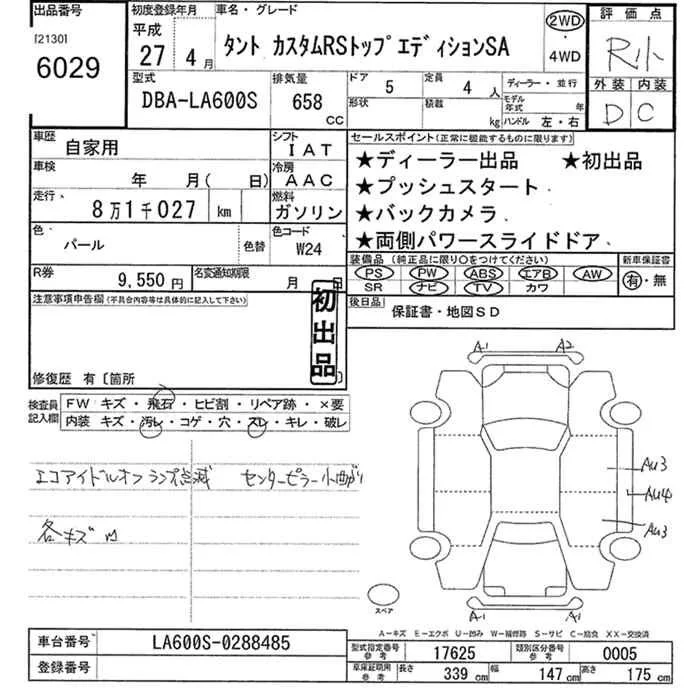 出品番号
[2130]
6029
初度登録年月
平成
27 4月
車名・グレード
タント カスタムRSトップエディションSA
2WD
・
4WD
評価点
R小
外装 内装
D C
型式
DBA-LA600S
排気量
658
CC
ドア
5
定員
4 人
形状
積載
kg
ディーラー・並行
モデル年式 年
ハンドル 左・右
車歴
自家用
シフト
IAT
車検
年 月( 日)
冷房
AAC
走行
8万1千027 km
燃料
ガソリン
色
パール
色替
色コード
W24
R券
9,550円
名変通知期限
月 日
セールスポイント(正常に機能するものに限ります)
★ディーラー出品 ★初出品
★プッシュスタート
★バックカメラ
★両側パワースライドドア
装備品 (純正品に限り○をつけてください)
PS PW ABS エアB AW
SR ナビ TV カワ
新車保証書
有・無
後日品
保証書・地図SD
注意事項申告欄(不具合内容等は具体的に記入して下さい)
初出品
修復歴 有〔箇所 〕
検査員記入欄
FW キズ・飛石・ヒビ割・リペア跡・×要
内装 キズ・汚レ・コゲ・穴・スレ・キレ・破レ
エコアイドルオフランプ点滅 センターピラー小曲がり
各キズ凹
A1 A2
AU3
AU4
AU3
A1 A1
スペア
A-キズ E-エクボ U-凹み W-補修跡 S-サビ C-腐食 XX-交換済
車台番号
LA600S-0288485
登録番号
型式指定番号
参考
17625
類別区分番号
参考
0005
車庫証明用
参考
長さ
339 cm
幅
147 cm
高さ
175 cm